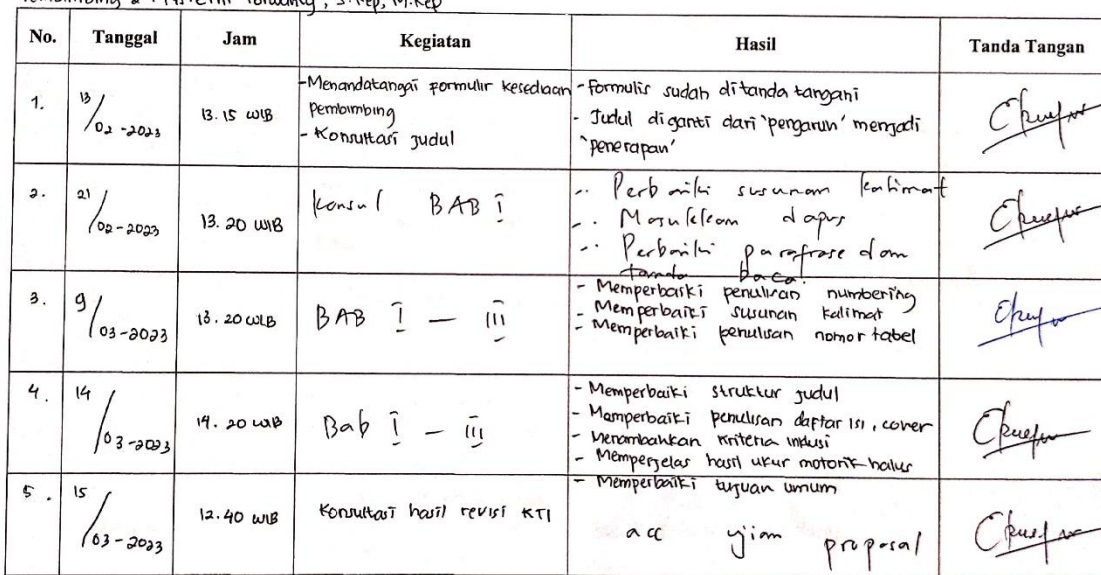 Pembimbing 2 : , S.Kep, M.Kep
No. Tanggal Jam Kegiatan Hasil Tanda Tangan
1. 13/02-2023 13.15 WIB
-Menandatangai formulir kesediaan pembimbing
- Konsultasi judul
- Formulir sudah ditanda tangani
- Judul diganti dari 'pengaruh' menjadi
'penerapan'
2. 21/02-2023 13.20 WIB
Konsul BAB I
- Perbaiki susunan kalimat
- Masukkan dapus
- Perbaiki parafrase dan
tanda baca
3. 9/03-2023 13.20 WIB
BAB I - III
- Memperbaiki penulisan numbering
- Memperbaiki susunan kalimat
- Memperbaiki penulisan nomor tabel
4. 14/03-2023 14.20 WIB
Bab I - III
- Memperbaiki struktur judul
- Memperbaiki penulisan daftar isi, cover
- Menambahkan kriteria inklusi
- Memperjelas hasil ukur motorik halus
- Memperbaiki tujuan umum
5. 15/03-2023 12.40 WIB
Konsultasi hasil revisi KTI
acc ujian proposal